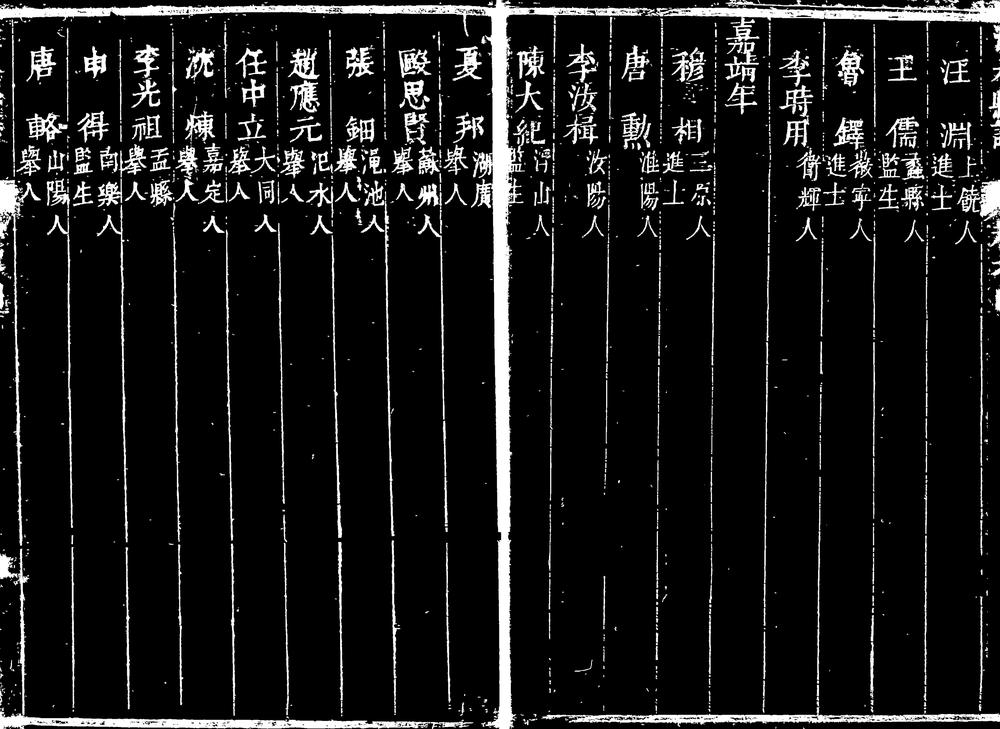 汪淵 上饒人 進士
王儒 蠡縣人 監生
魯鐸 咸寧人 進士
李時用 衞輝人
嘉靖年
穆相 三原人 進士
唐勲 淮陽人
李汝楫 汝陽人
陳大紀 浮山人 監生
夏邦 湖廣人 舉人
歐思賢 蘇州人 舉人
張鈿 澠池人 舉人
趙應元 汜水人 舉人
任中立 大同人 舉人
沈煉 嘉定人 舉人
李光祖 孟縣人 舉人
申得 南樂人 監生
唐輅 山陽人 舉人